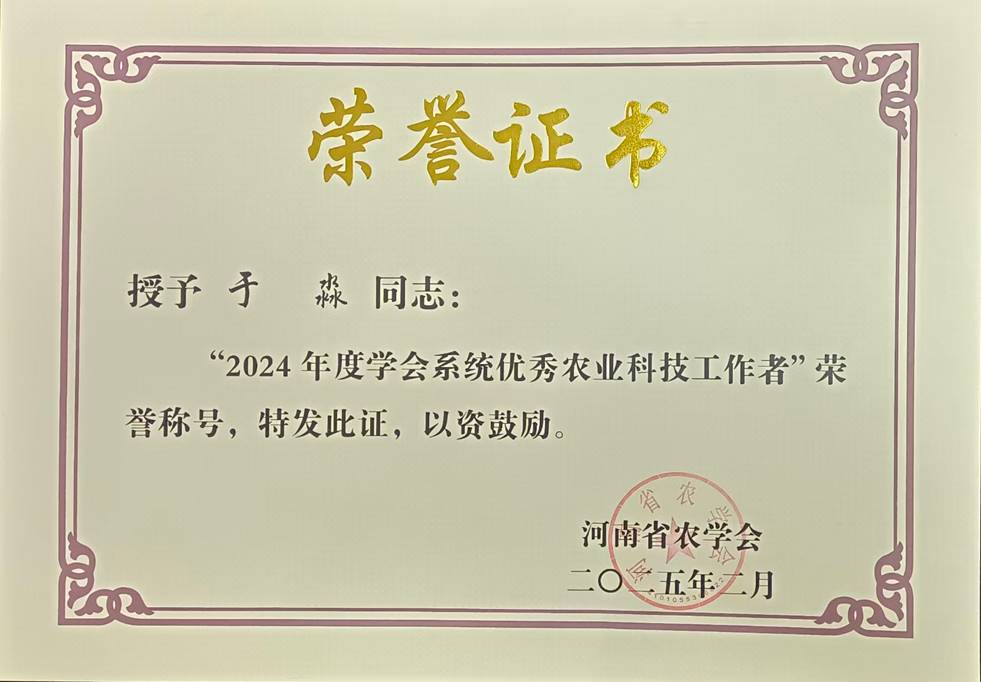 荣誉证书
授予 于 淼 同志：
“2024 年度学会系统优秀农业科技工作者”荣
誉称号，特发此证，以资鼓励。
河南省农学会
二〇二五年二月
河南省农学会